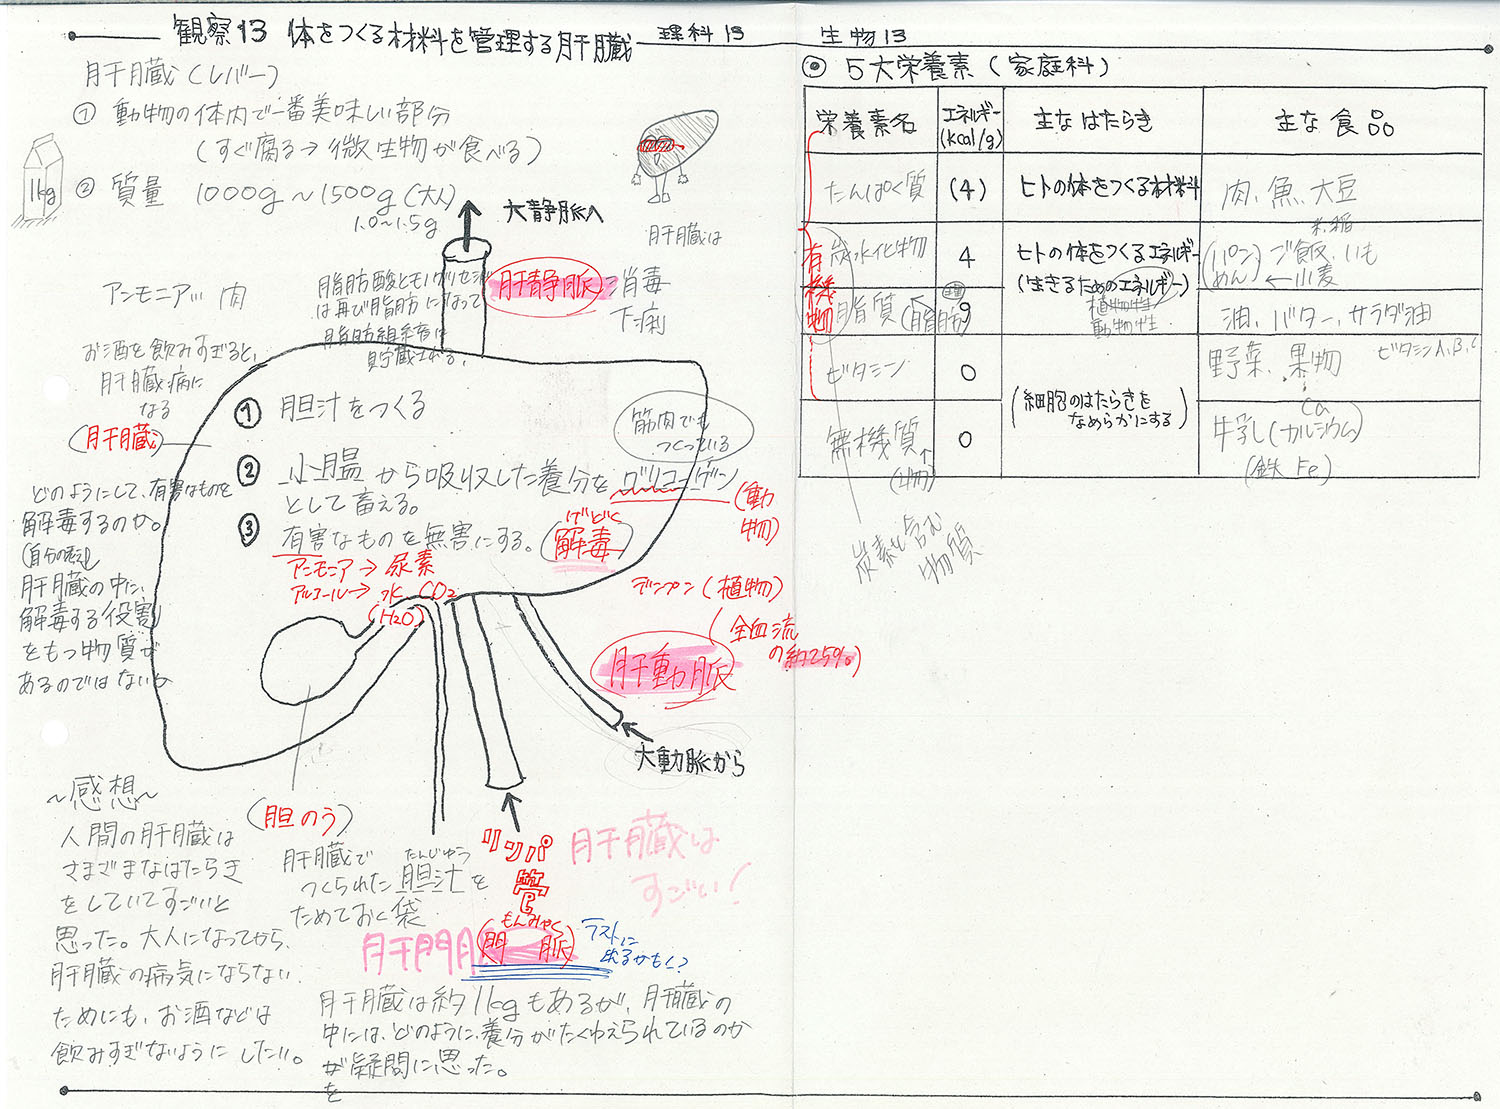 観察13 体をつくる材料を管理する肝臓
理科13
生物13
肝臓(レバー)
① 動物の体内で一番美味しい部分
(すぐ腐る→微生物が食べる)
1kg
② 質量 1000g～1500g(大人)
1.0～1.5g
大静脈へ
肝臓は
消毒
下痢
肝静脈
脂肪酸とモノグリセリド
は再び脂肪になって
脂肪組織に
貯蔵される。
アンモニア… 肉
お酒を飲みすぎると、
肝臓病に
なる
(肝臓)
① 胆汁をつくる
筋肉でも
つくっている
② 小腸から吸収した養分をグリコーゲン
として蓄える。
(動物)
③ 有害なものを無害にする。
げどく
(解毒)
アンモニア→尿素
アルコール→水 CO2
(H2O)
デンプン(植物)
どのようにして、有害なものを
解毒するのか。
肝臓の中に、
解毒する役割
をもつ物質が
あるのではないか
肝動脈
全血流
の約25%)
大動脈から
(胆のう)
肝臓で
つくられた胆汁を
たんじゅう
ためておく袋
リンパ
管
もんみゃく
肝門脈(門脈)
テストに
出るかも!?
肝臓は
すごい!
～感想～
人間の肝臓は
さまざまなはたらき
をしていてすごいと
思った。大人になってから、
肝臓の病気にならない
ためにも、お酒などは
飲みすぎないようにしたい。
肝臓は約1kgもあるが、肝臓の
中には、どのように、養分がたくわえられているのか
が疑問に思った。
を
◎ 5大栄養素(家庭科)
栄養素名 エネルギー(kcal/g) 主なはたらき 主な食品
たんぱく質 (4) ヒトの体をつくる材料 肉、魚、大豆
有機物
炭水化物 4 ヒトの体をつくるエネルギー (生きるためのエネルギー) (パン めん) ご飯、いも
米、稲
←小麦
脂質(脂肪) 9 油、バター、サラダ油
植物性
動物性
ビタミン 0 (細胞のはたらきをなめらかにする) 野菜、果物
ビタミンA、B、C
無機質 0 牛乳(カルシウム)
Ca
(鉄 Fe)
炭素を含む
物質